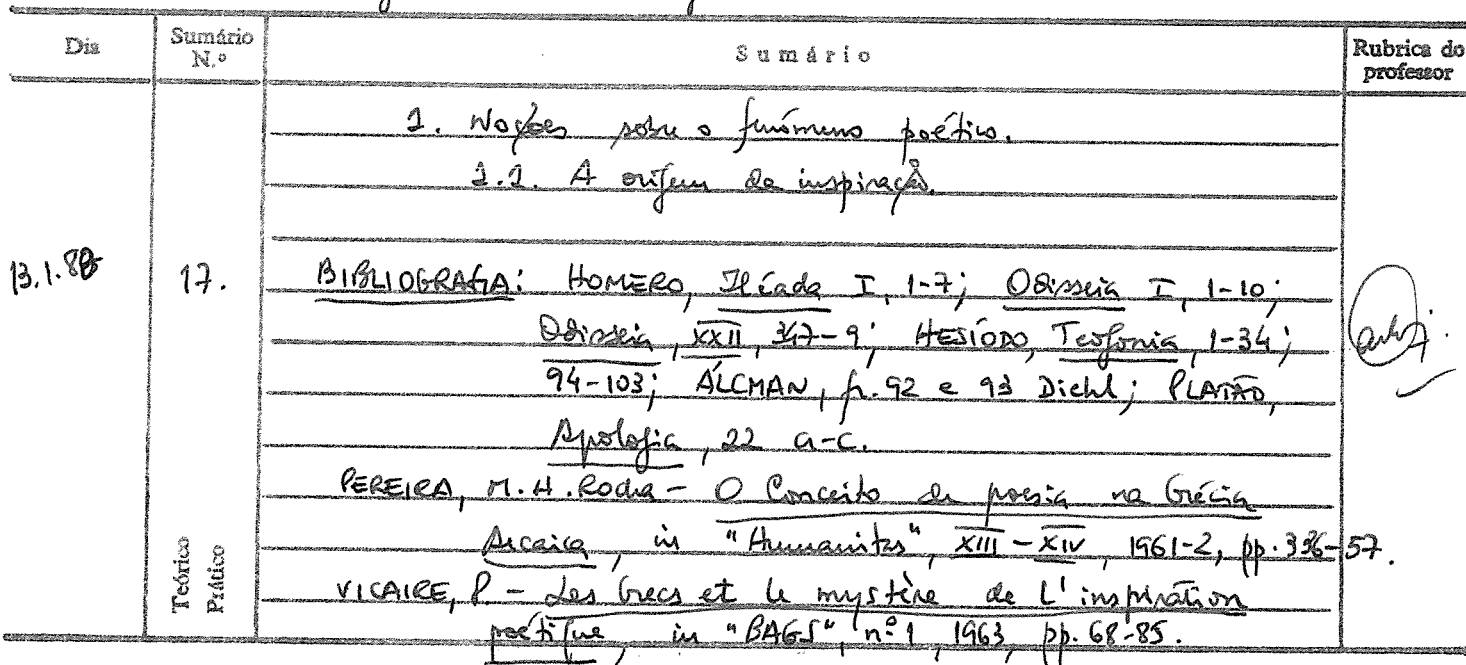 Dia
Sumário N.º
Sumário
Rubrica do professor
1. Noções sobre o fenómeno poético.
1.1. A origem da inspiração.
13.1.88
17.
BIBLIOGRAFIA: HOMERO, Ilíada I, 1-7; Odisseia I, 1-10;
Odisseia, XXII, 347-9; HESÍODO, Teogonia, 1-34;
94-103; ÁLCMAN, fr. 92 e 93 Diehl; PLATÃO,
Apologia, 22 a-c.
PEREIRA, M. H. Rocha - O Conceito de poesia na Grécia
Arcaica, in "Humanitas", XIII-XIV, 1961-2, pp. 336-57.
VICAIRE, P. - Les Grecs et le mystère de L'inspiration
poétique, in "BAGB", nº 1, 1963, pp. 68-85.
Teórico
Prático